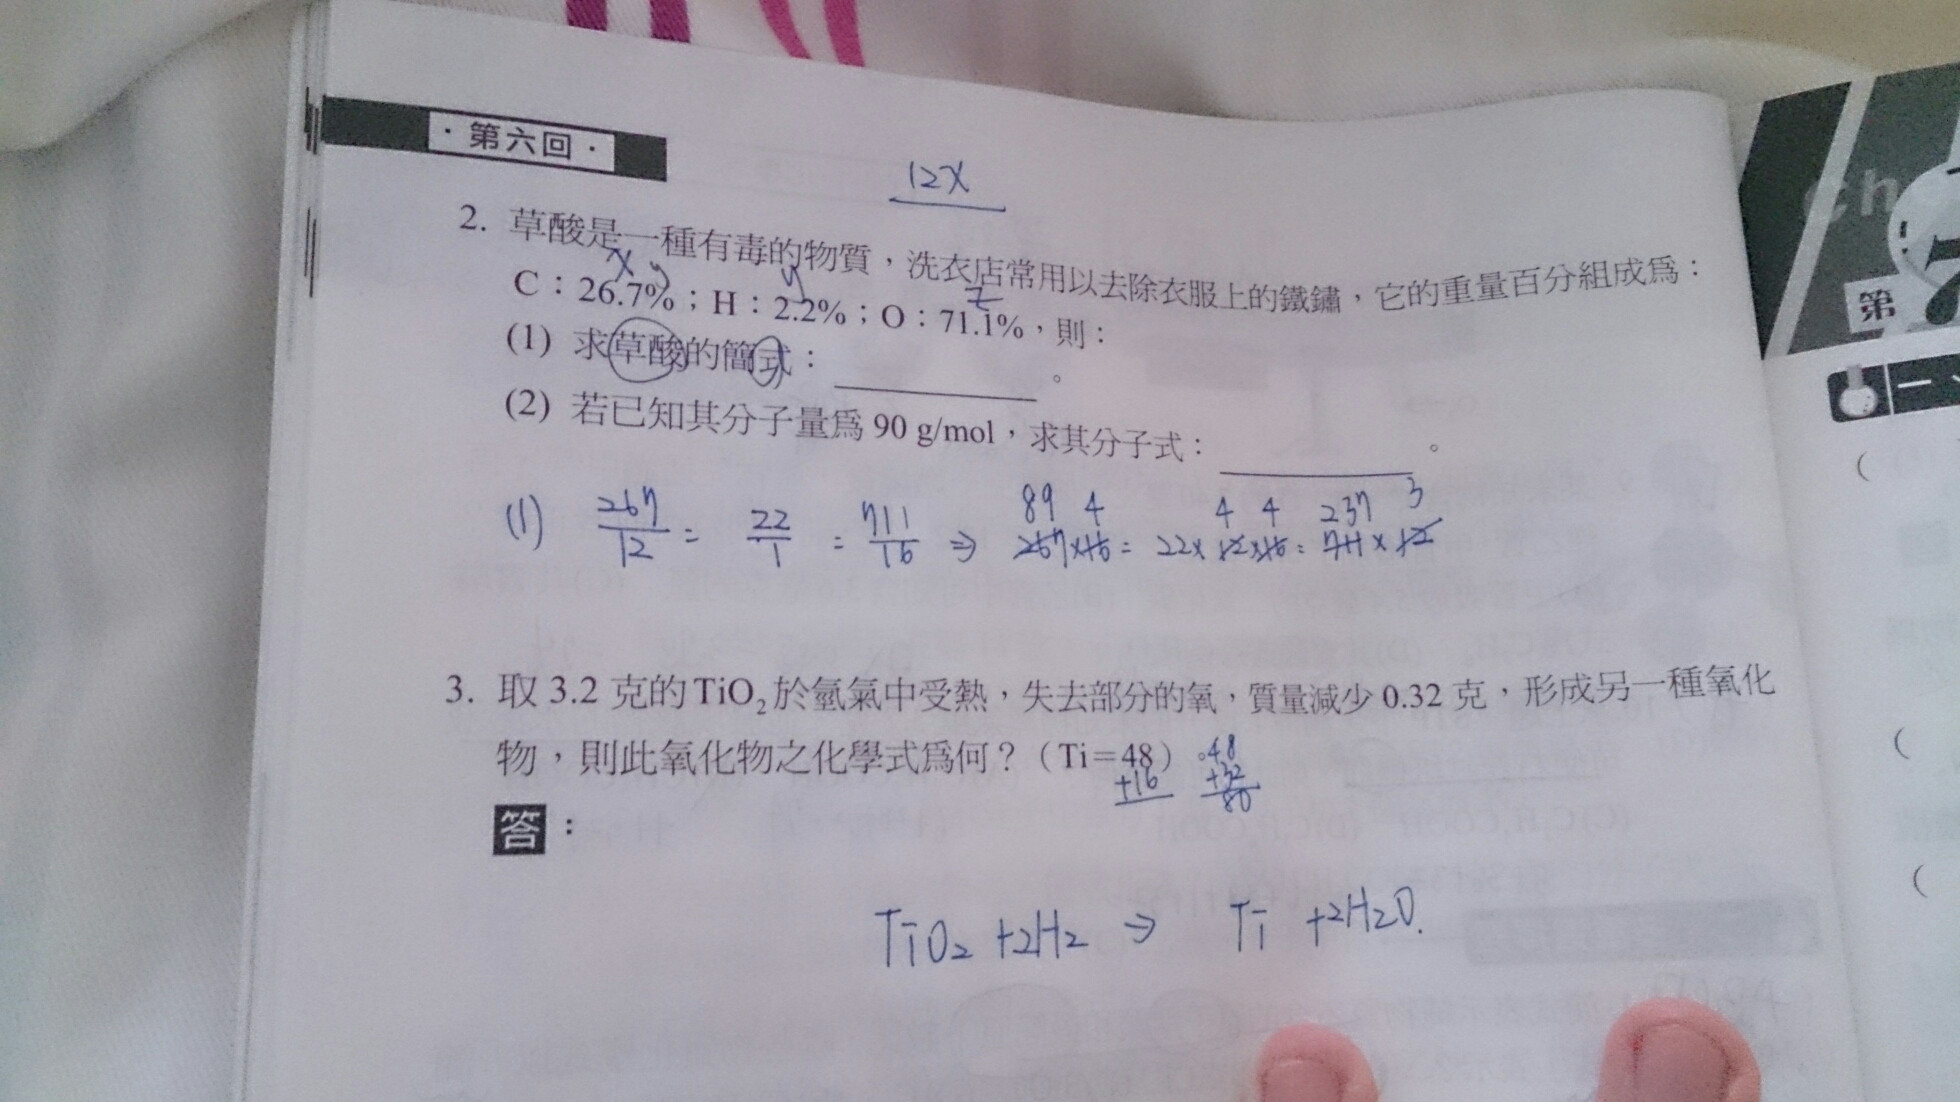 ·第六回·
12x
2. 草酸是一種有毒的物質，洗衣店常用以去除衣服上的鐵鏽，它的重量百分組成為：
x y y z
C：26.7%；H：2.2%；O：71.1%，則：
(1) 求草酸的簡式：＿＿＿＿＿。
(2) 若已知其分子量為 90 g/mol，求其分子式：＿＿＿＿＿。
89 4 4 4 237 3
(1) 267/12 = 22/1 = 711/16 ⇒ 267×16 = 22×12×16 = 711×12
3. 取 3.2 克的 TiO₂ 於氫氣中受熱，失去部分的氧，質量減少 0.32 克，形成另一種氧化
物，則此氧化物之化學式為何？（Ti＝48）
+16
48
+32
80
答：
TiO₂ +2H₂ ⇒ Ti +2H₂O.
Ch
第 7
一、
(
(
(